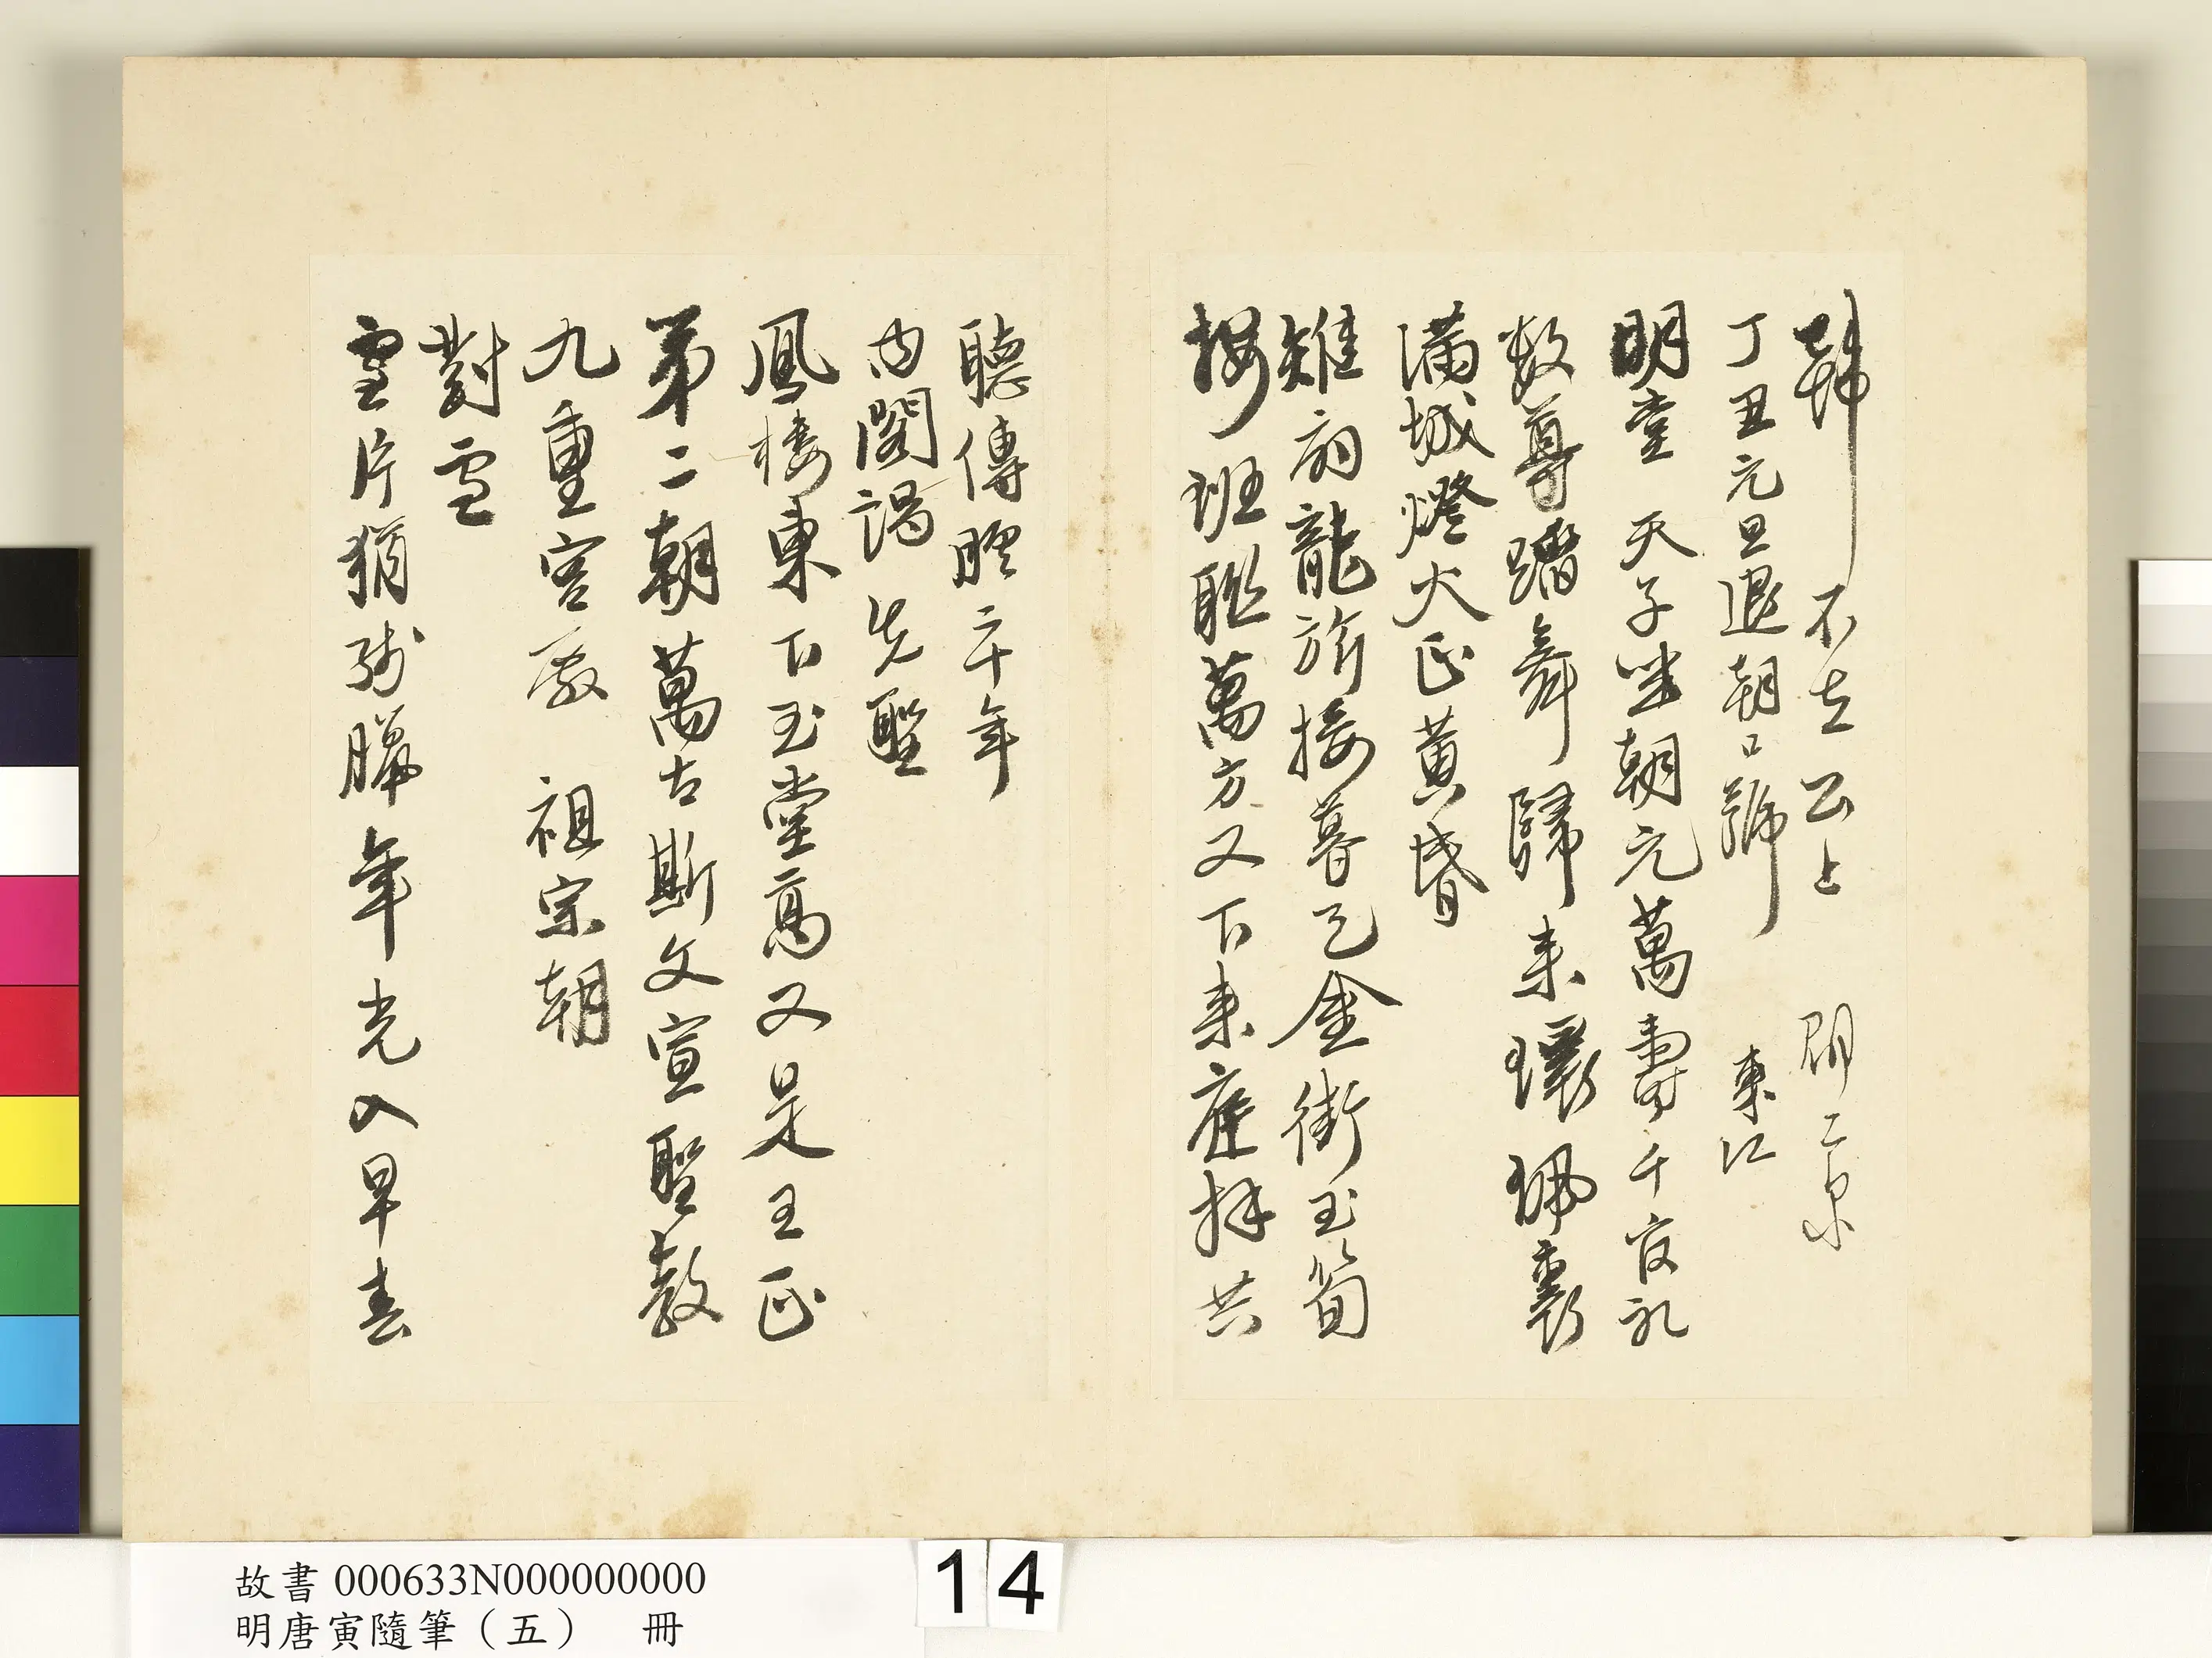 不去 公上
丁丑元旦退朝口號 東江
明堂 天子坐朝元萬壽千官礼
数尊蹈舞歸来環珮裊
满城燈火正黄昏
雉扇龍旂接暮雲金街玉筍
班聯萬方又下来庭拜共
聽傳臚二十年
内閣謁 先聖
鳳樓東下玉堂高又是王正
第二朝萬古斯文宣聖教
九重宫殿 祖宗朝
對雪
雪片猶殘臘年光入早春
故書 000633N000000000
明唐寅隨筆（五） 冊
14